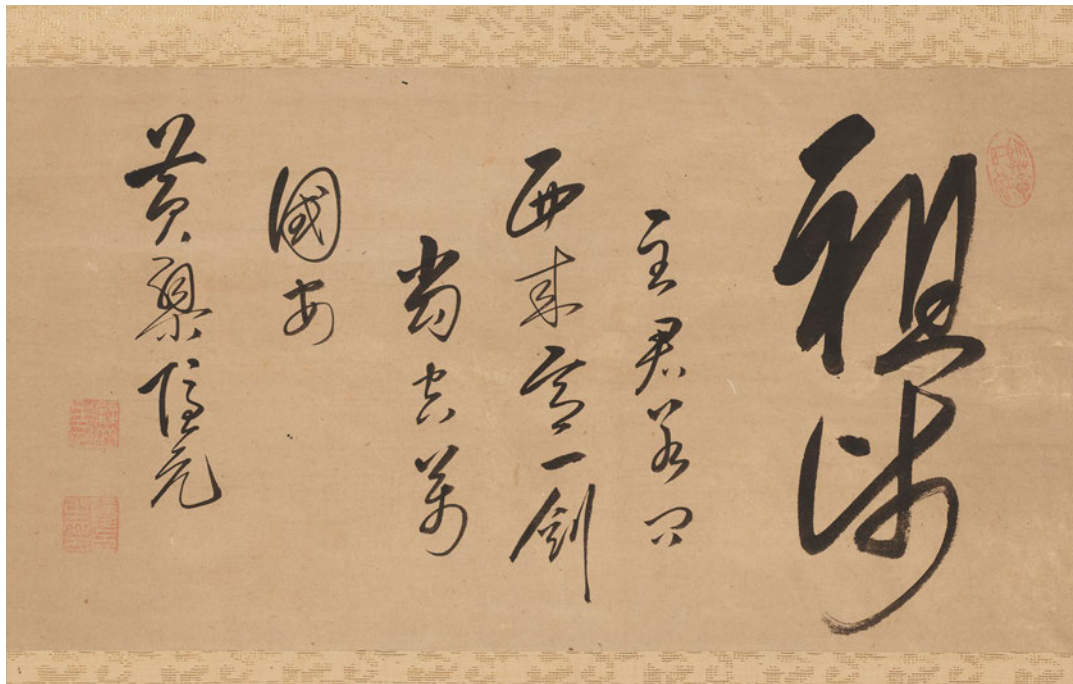 祖師
主君若問
西来意一劍
當空萬
國安
黃檗隱元